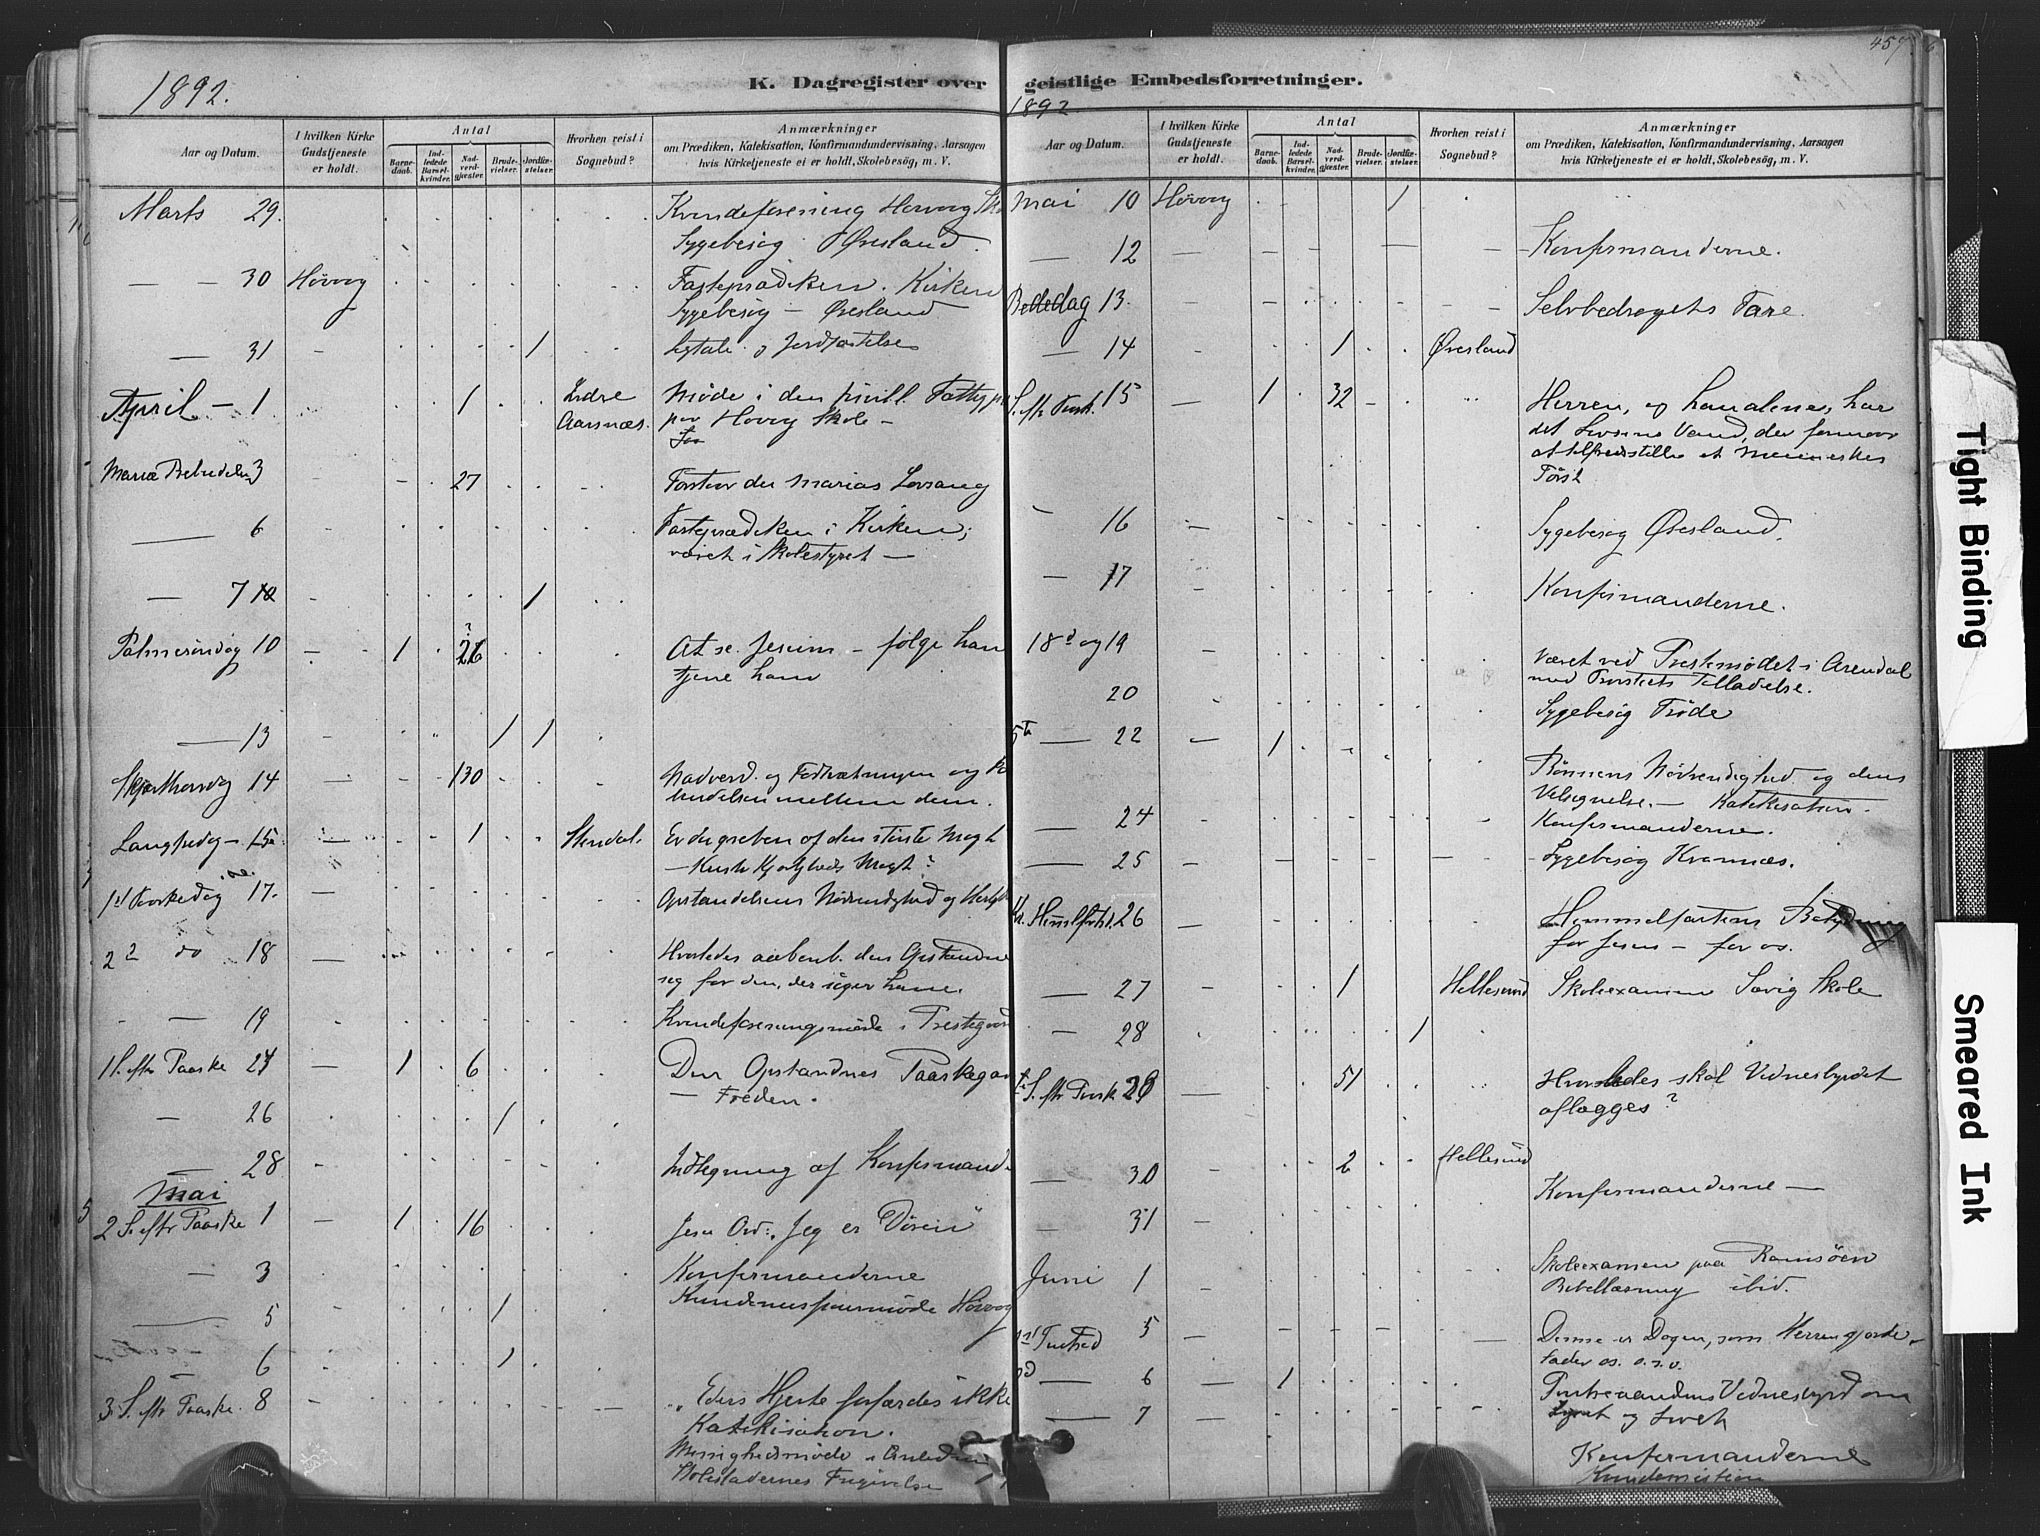 1892.
K. Dagregister over
Aar og Datum.
I hvilken Kirke Gudstjeneste er holdt.
Antal
Barnedaab.
Indledede Barselkvinder.
Nadverdgjæster.
Brudevielser.
Jordfæstelser.
Hvorhen reist i Sognebud?
Anmærkninger
om Prædiken, Katekisation, Konfirmandundervisning, Aarsagen
hvis Kirketjeneste ei er holdt, Skolebesög, m. V.
Marts 29. Kvindeforening Høvaag
Sygebesøg Øresland.
30 Høvaag Fasteprædiken. Kirken
Sygebesøg — Øresland
31 1 Ligtale og Jordfæstelse
April — 1 1 Indre Møde i den
Aarsnæs. paa Høvaag Skole —
Mariæ Bebudelse 3 27 Marias Lovsang
6 Fasteprædiken i Kirken;
været i Skolestyret —
7 1
Palmesøndag 10 1 26 At se Jesum — følge ham
tjene ham
13 1 1
Skjærthorsdag 14 130 Nadverd. og Fodtvætningen og
mellem dem.
Langfredag — 15 1 Stendal. Er du greben af den største Magt
— Kjærligheds Magt?
1st Paaskedag 17. Opstandelsens Nødvendighed og
2d do 18 Hvorledes aabenb. den Opstandne
sig for den, der søger ham.
19 Kvindeforeningsmøde i
1 S. eftr Paaske 24 1 6 Den Opstandnes Paaskegave
— Freden.
26 1
28 Indtegning af Konfirmander
Mai
2 S. eftr Paaske 1 1 16 Jesu Ord: „Jeg er Døren“
3 Konfirmanderne
Høvaag
5 1
6 1
3. S. eftr Paaske. 8 „Eders Hjerte forfærdes ikke
Katekisation.
Menighedsmøde i Anledning
459
geistlige Embedsforretninger.
1892
Aar og Datum.
I hvilken Kirke Gudstjeneste er holdt.
Antal
Barnedaab.
Indledede Barselkvinder.
Nadverdgjæster.
Brudevielser.
Jordfæstelser.
Hvorhen reist i Sognebud?
Anmærkninger
om Prædiken, Katekisation, Konfirmandundervisning, Aarsagen
hvis Kirketjeneste ei er holdt, Skolebesög, m. V.
Mai 10 Høvaag 1
12 Konfirmanderne.
Bededag 13. Selvbedragets Fare.
14 1 Øresland
S. eftr Paask. 15 1 32 Herren, og han alene, har
det Livsens Vand, der formaar
at tilfredsstille et Menneskes
Tørst
16 Sygebesøg Øresland.
17 Konfirmanderne.
18d og 19 Været ved Prestemødet i Arendal
med Provstiets Tilladelse.
20 Sygebesøg Trøde
5te 22 1 Bønnens Nødvendighed og dens
Velsignelse. — Katekisation.
24 Konfirmanderne.
25 Sygebesøg Kvannæs.
Kr. Himelfartsd. 26 Himmelfartens Betydning
for Jesus — for os.
27 1 Hellesund Skoleexamen Skole
28 1
S. eftr Paask 29 51 Hvorledes skal Vidnesbyrdet
aflægges?
30 2 Hellesund Konfirmanderne —
31
Juni 1 Skoleexamen paa Ramsøen
Bibellæsning ibid.
1st Pintsed 5 Denne er Dagen, som Herren gjorde
lader os. o.s.v.
2d 6 1 Vidnesbyrd om
og Livet
7 Konfirmanderne
Tight Binding
Smeared Ink